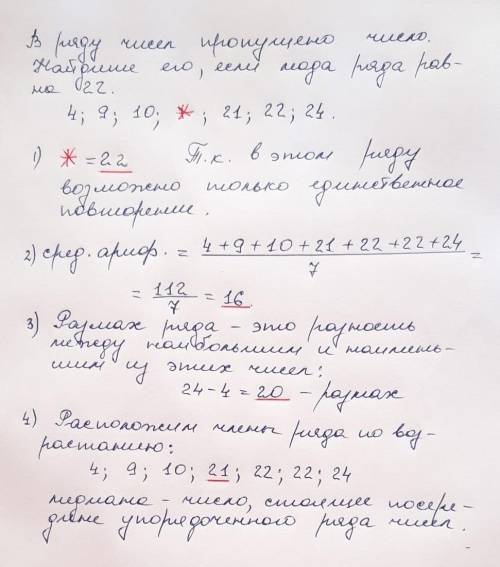 В ряду чисел пропущено число.
Найдите его, если мода ряда рав-
на 22.
4; 9; 10; *; 21; 22; 24.
1) * = 22 Т.к. в этом ряду
возможно только единственное
повторение.
2) сред. ариф. = 4+9+10+21+22+22+24 =
7
= 112 = 16.
7
3) Размах ряда - это разность
между наибольшим и наимень-
шим из этих чисел:
24-4 = 20 - размах
4) Расположим члены ряда по воз-
растанию:
4; 9; 10; 21; 22; 22; 24
медиана - число, стоящее посере-
дине упорядоченного ряда чисел.